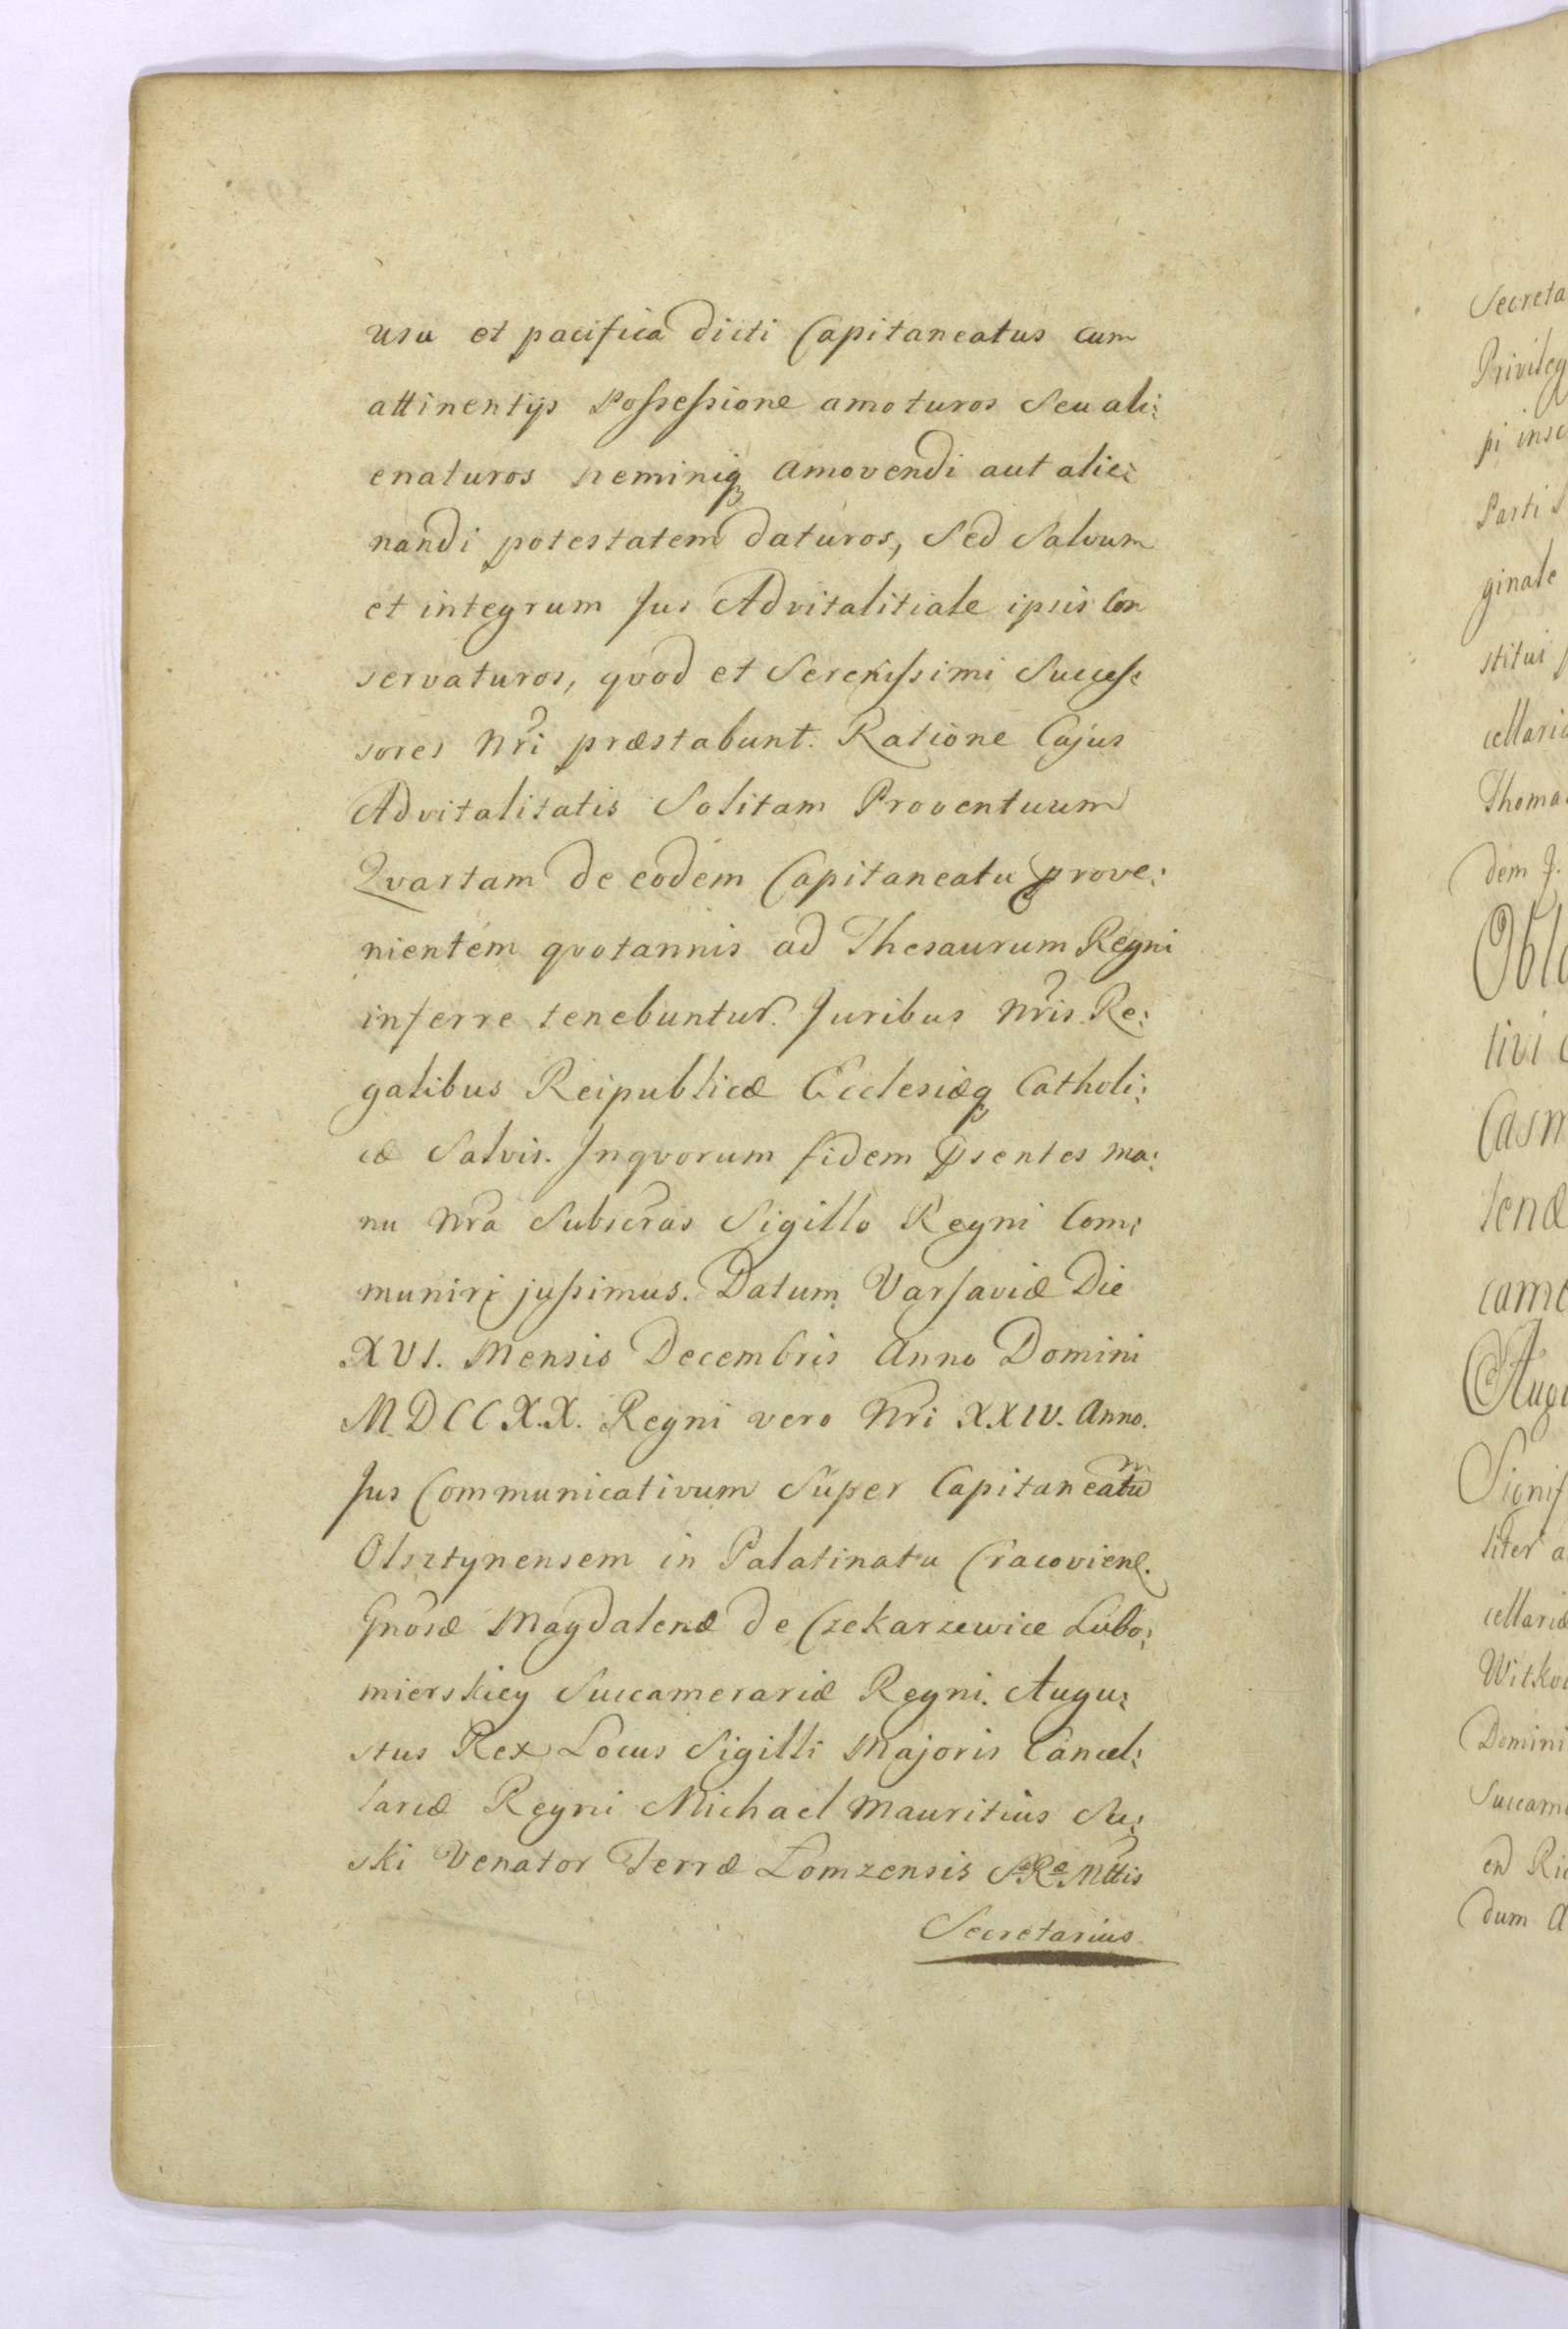 usu et pacifica dicti Capitaneatus cum
attinentijs Possessione amoturos seu ali:
enaturos neminiq amovendi aut alie:
nandi potestatem daturos, Sed Salvum
et integrum Jus Advitalitiale ipsis Con
servaturos, qvod et Serenissimi Succes:
sores Nri præstabunt. Ratione Cujus
Advitalitatis Solitam Proventuum
Qvartam de eodem Capitaneatu prove:
nientem qvotannis ad Thesaurum Regni
inferre tenebuntur. Juribus Nris Re:
galibus Reipublicæ Ecclesiæq Catholi:
cæ Salvis. Inqvorum fidem psentes ma:
nu Nra Subscras Sigillo Regni Com:
muniri jussimus. Datum Varsaviæ Die
XVI. Mensis Decembris Anno Domini
MDCCX.X. Regni vero Nri XXIV. Anno.
Jus Communicativum Super Capitaneatu
Olsztynensem in Palatinatu Cracovien.
Gnosæ Magdalenæ de Czekarzewice Lubo:
mierskiey Succamerariæ Regni. Augu:
stus Rex Locus Sigilli Majoris Cancel:
lariæ Regni Michael Mauritius Su:
ski Venator Terræ Lomzensis S Ræ Mttis
Secretarius
Secreta
Privileg
pi insc
Parti
ginale
stitui
cellaria
Thoma
dem J.
Obla
tivi
Casm
tenæ
came
Augu
Signif
liter a
cellariæ
Witkow
Domini
Succam
en Ri
dum A